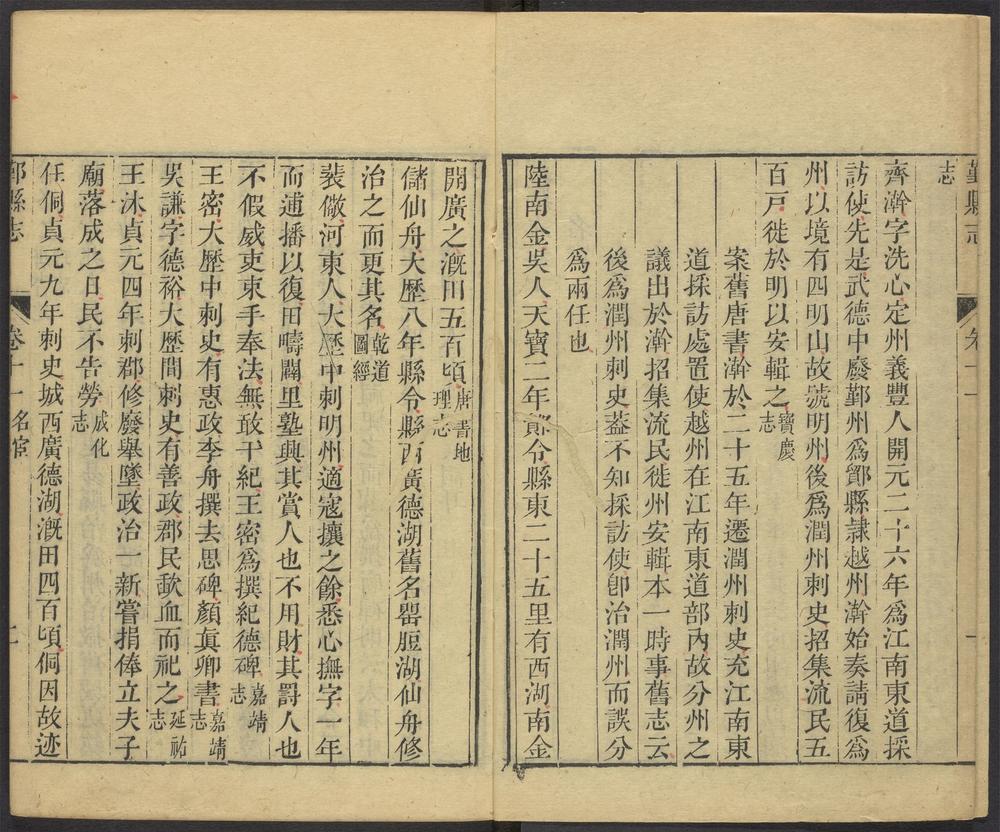 鄞縣志
志
齊澣字洗心定州義豐人開元二十六年爲江南東道採
訪使先是武德中廢鄞州爲鄮縣隷越州澣始奏請復爲
州以境有四明山故號明州後爲潤州刺史招集流民五
百戸徙於明以安輯之寶慶志
案舊唐書澣於二十五年遷潤州刺史充江南東
道採訪處置使越州在江南東道部內故分州之
議出於澣招集流民徙州安輯本一時事舊志云
後爲潤州刺史葢不知採訪使卽治潤州而誤分
爲兩任也
陸南金吳人天寶二年鄮令縣東二十五里有西湖南金
開廣之漑田五百頃唐書地理志
儲仙舟大歷八年縣令縣西廣德湖舊名罌脰湖仙舟修
治之而更其名乾道圖經
裴儆河東人大歷中刺明州適寇攘之餘悉心撫字一年
而逋播以復田疇闢里塾興其賞人也不用財其罸人也
不假威吏束手奉法無敢干紀王密爲撰紀德碑嘉靖志
王密大歷中刺史有惠政李舟撰去思碑顏眞卿書嘉靖志
吳謙字德裕大歷間刺史有善政郡民歃血而祀之延祐志
王沐貞元四年刺郡修廢舉墜政治一新嘗捐俸立夫子
廟落成之日民不告勞成化志
任侗貞元九年刺史城西廣德湖漑田四百頃侗因故迹
鄞縣志 卷十一 名宦 二